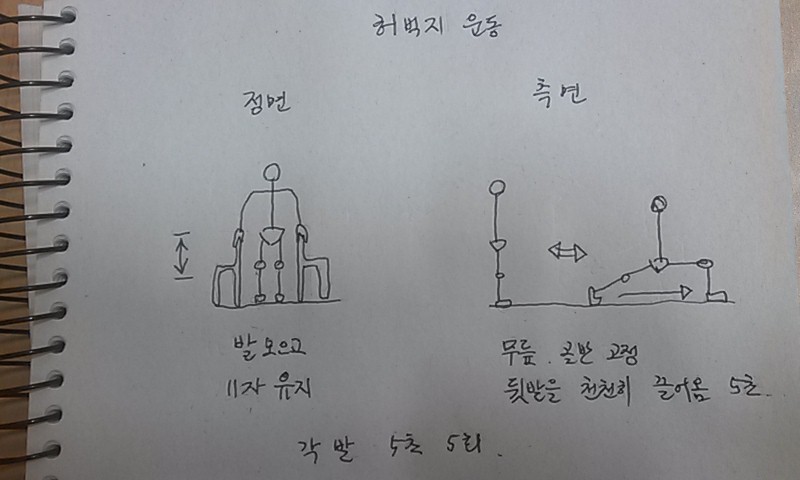 허벅지 운동
정면
측면
발 모으고
11자 유지
무릎. 골반 고정
뒷발을 천천히 끌어옴 5초.
각 발 5초 5회.